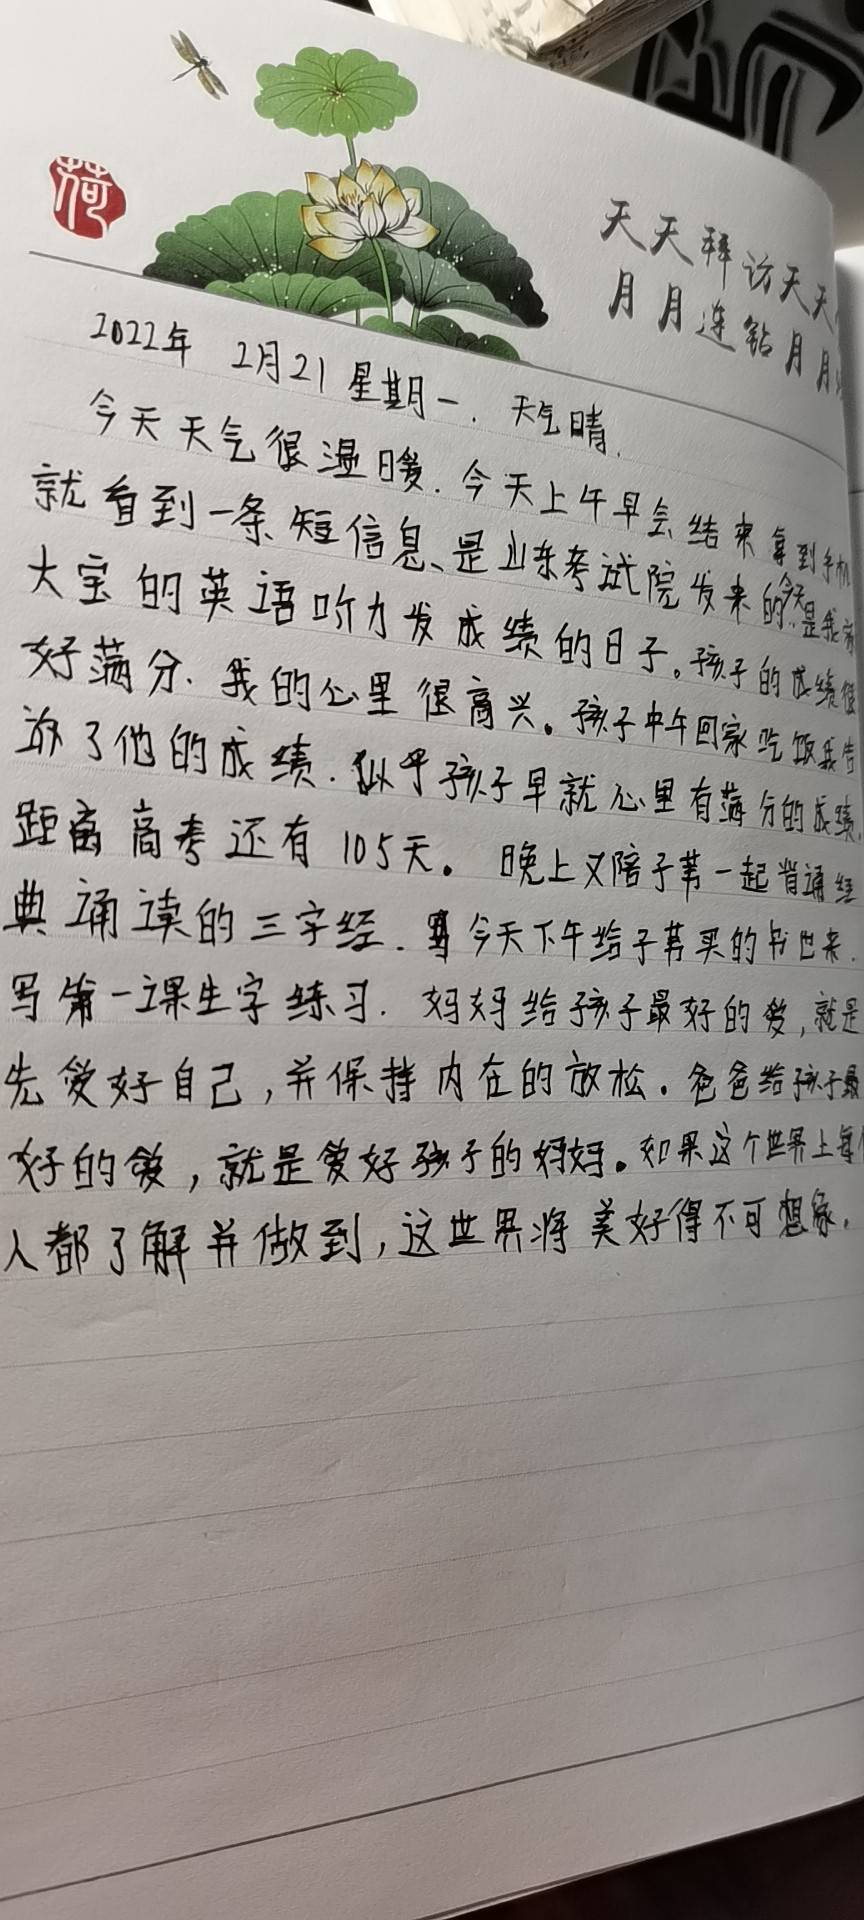 荷
天天拜访天天
月月连钻月月
2022年 2月21 星期一. 天气晴.
今天天气很温暖. 今天上午早会结束拿到手机
就看到一条短信息、是山东考试院发来的.今天是我家
大宝的英语听力发成绩的日子。孩子的成绩很
好满分. 我的心里很高兴。孩子中午回家吃饭我告
诉了他的成绩. 似乎孩子早就心里有满分的成绩.
距离高考还有105天。 晚上又陪子菁一起背诵经
典诵读的三字经. 今天下午给子菁买的书也来.
写第一课生字练习. 妈妈给孩子最好的爱, 就是
先爱好自己, 并保持内在的放松。爸爸给孩子最
好的爱, 就是爱好孩子的妈妈。如果这个世界上每个
人都了解并做到, 这世界将美好得不可想象.